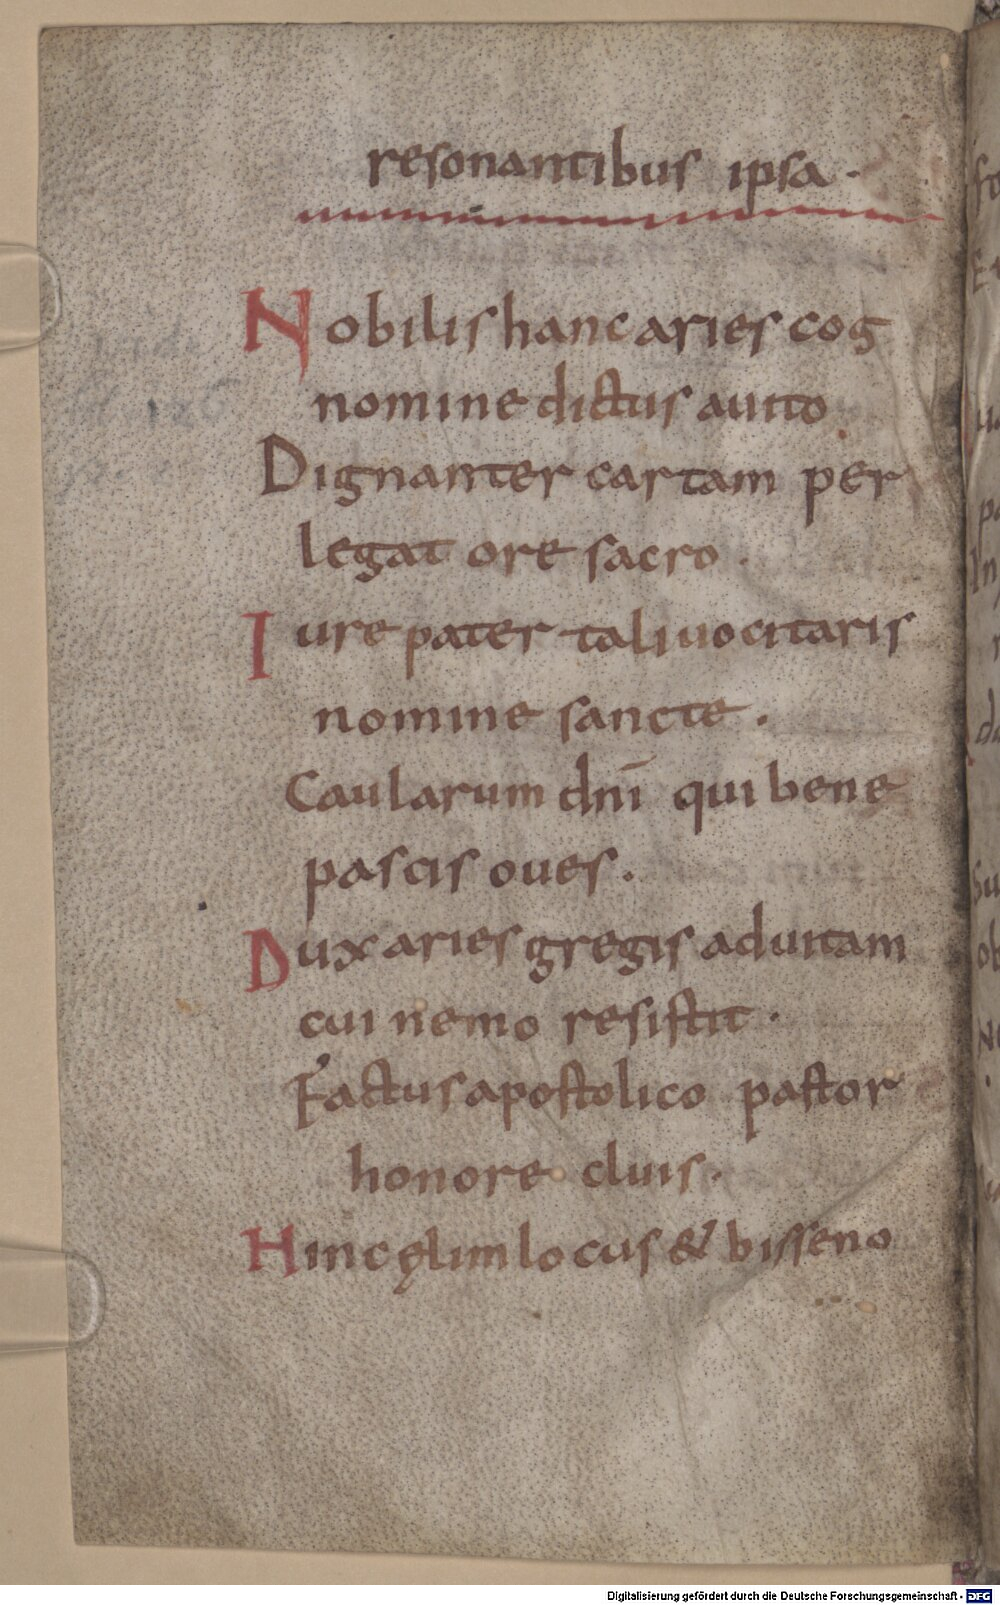 resonantibus ipsa ·
Nobilis hanc aries cog
nomine dictus auito
Dignanter cartam per
legat ore sacro ·
Iure pater tali uocitaris
nomine sancte ·
Caularum dnī qui bene
pascis oues ·
Dux aries gregis ad uitam
cui nemo resistit ·
Factus apostolico pastor
honore cluis ·
Hinc ęlim locus & bisseno
Digitalisierung gefördert durch die Deutsche Forschungsgemeinschaft - DFG